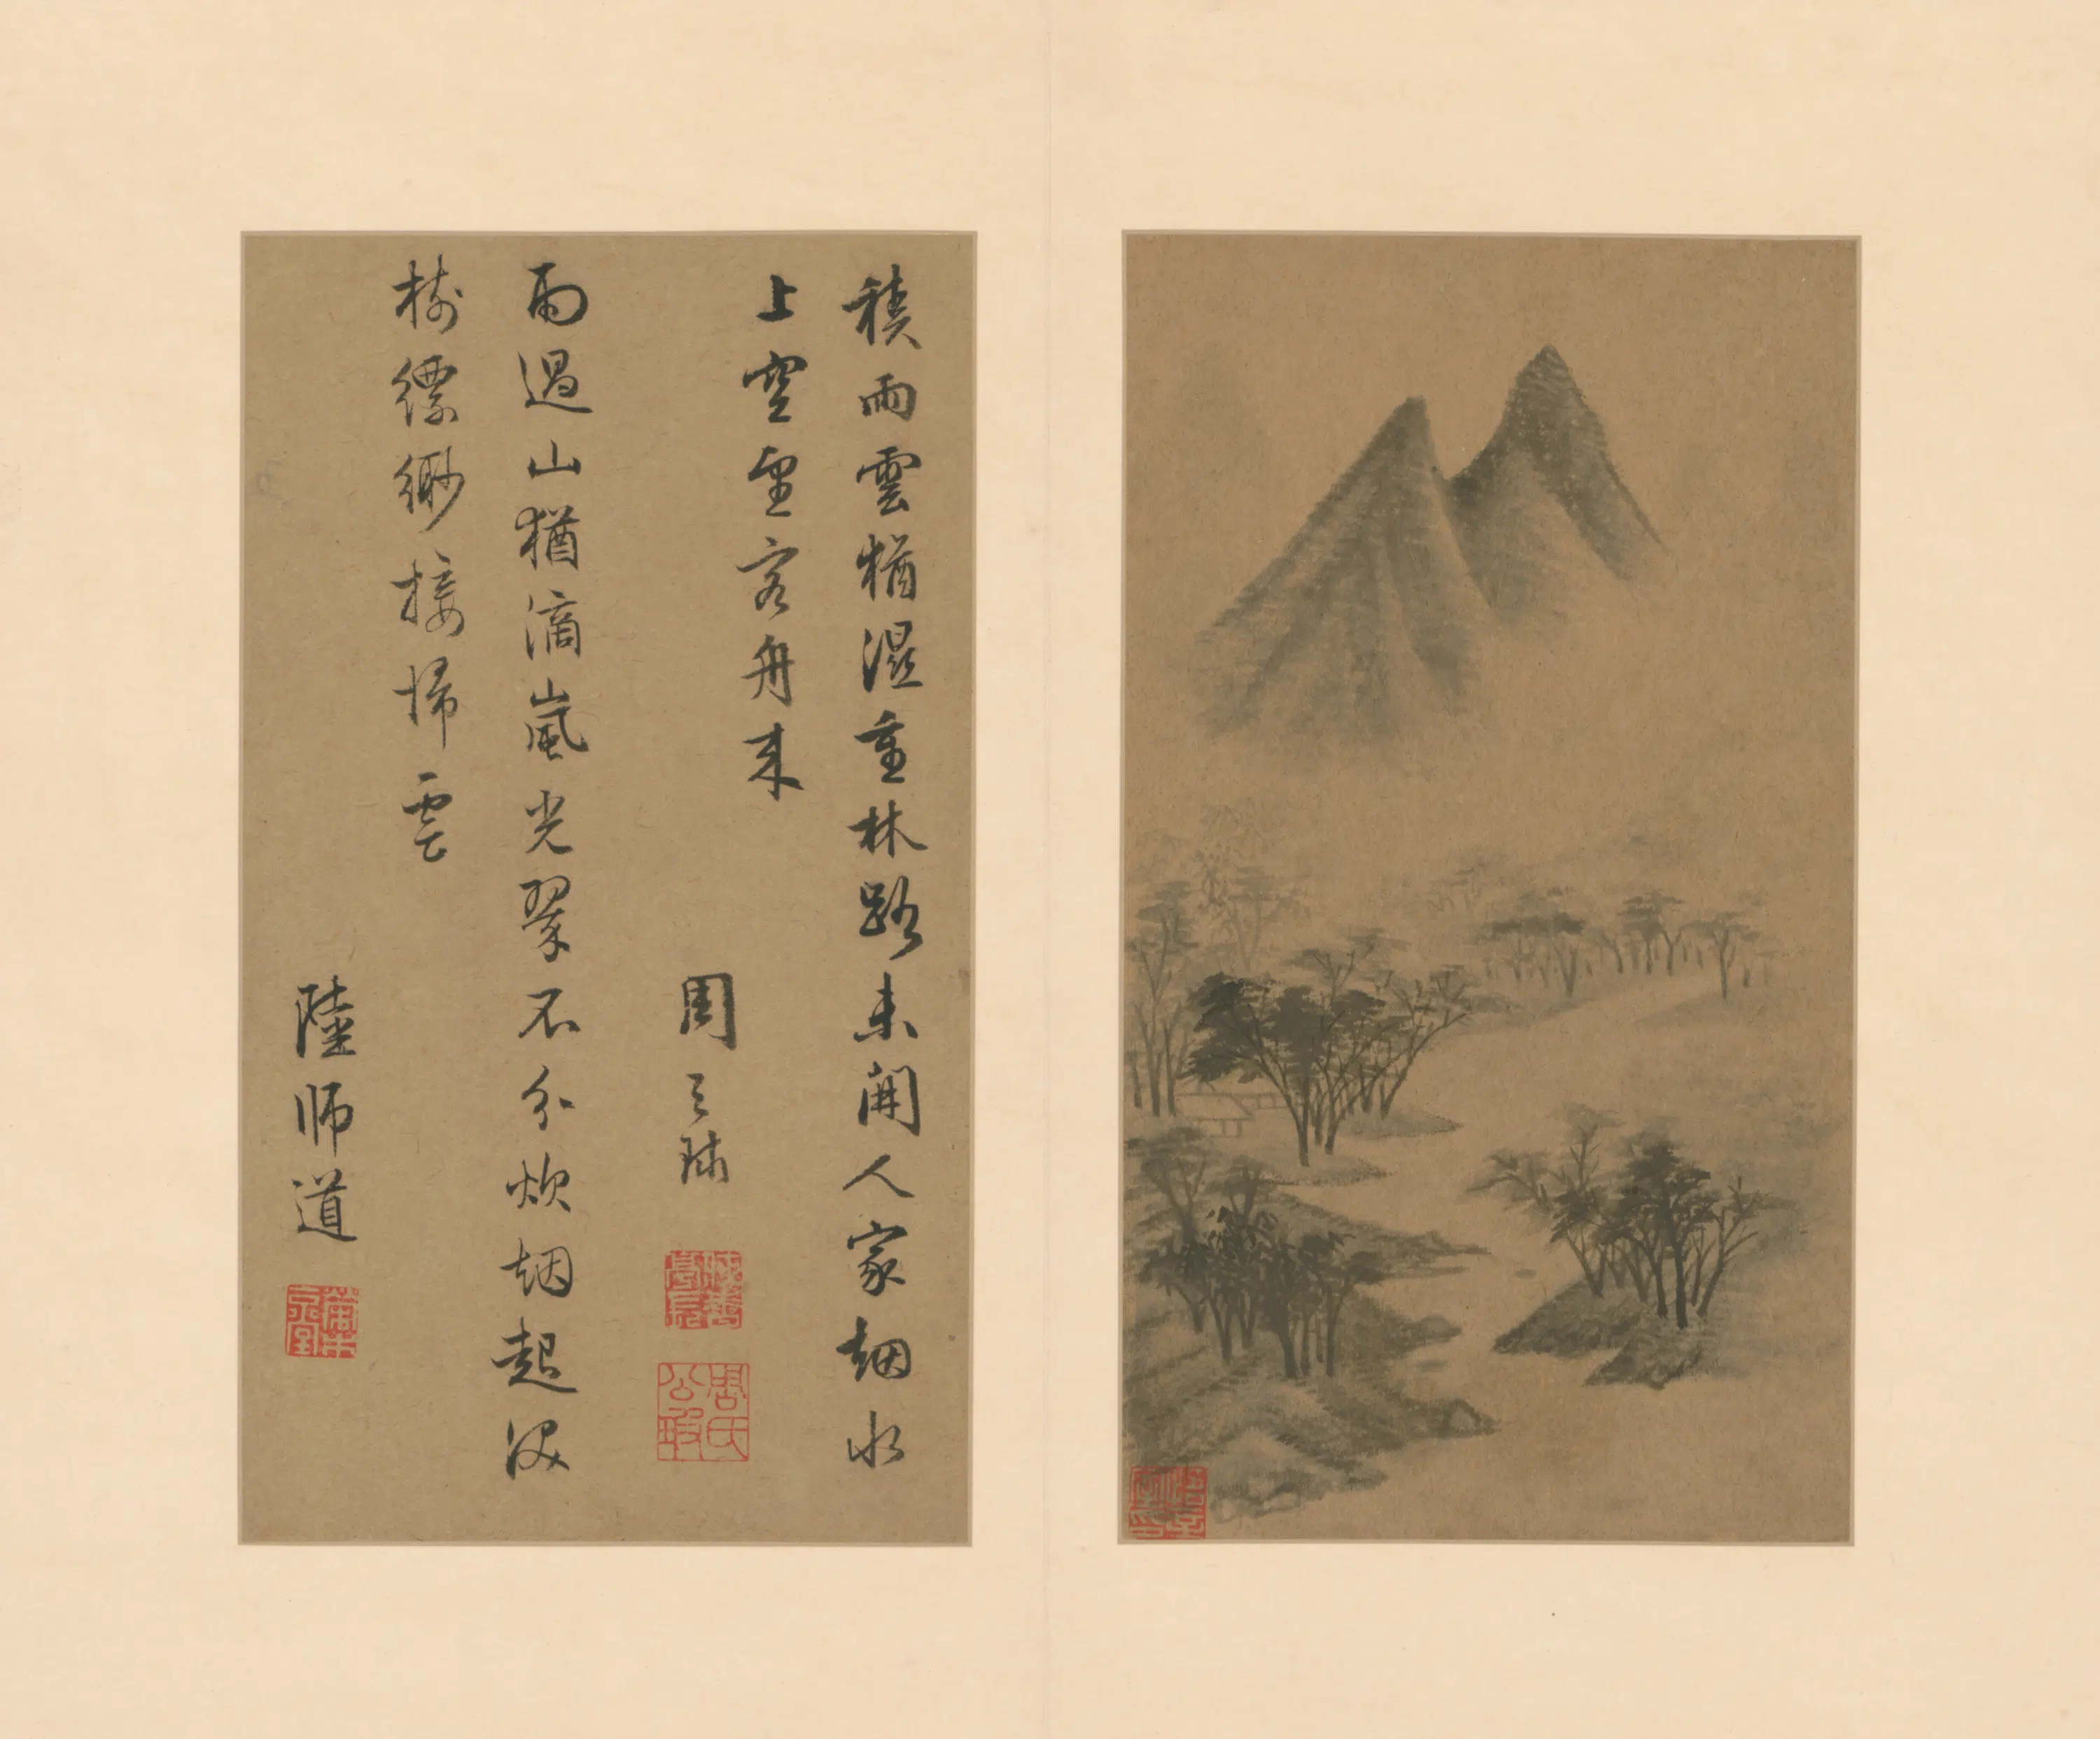 積雨雲猶濕重林路未開人家烟水
上空望客舟来
周之球
雨過山猶滴嵐光翠不分炊烟起深
樹縹緲接歸雲
陸師道
周氏公瑕